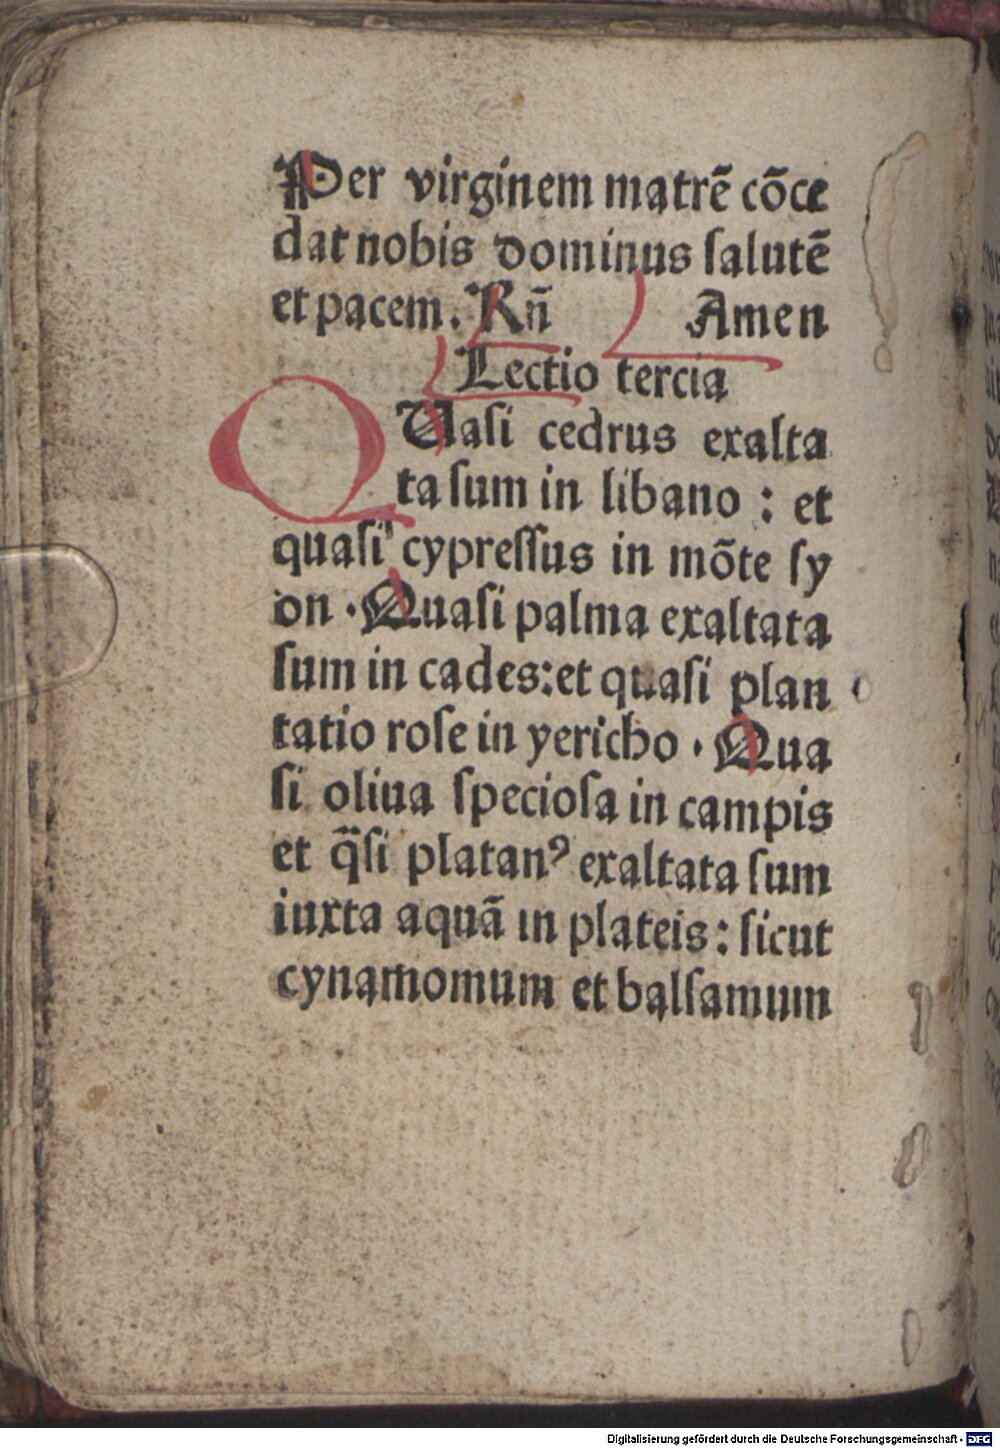 Per virginem matrē cōce
dat nobis dominus ſalutē
et pacem. Rn̄ Amen
Lectio tercia
QUaſi cedrus exalta
ta ſum in libano : et
quaſi cypreſſus in mōte ſy
on . Quaſi palma exaltata
ſum in cades: et quaſi plan
tatio roſe in yericho . Qua
ſi oliua ſpecioſa in campis
et q̄ſi platanꝰ exaltata ſum
iuxta aquā in plateis : ſicut
cynamomum et balſamum
Digitalisierung gefördert durch die Deutsche Forschungsgemeinschaft - DFG